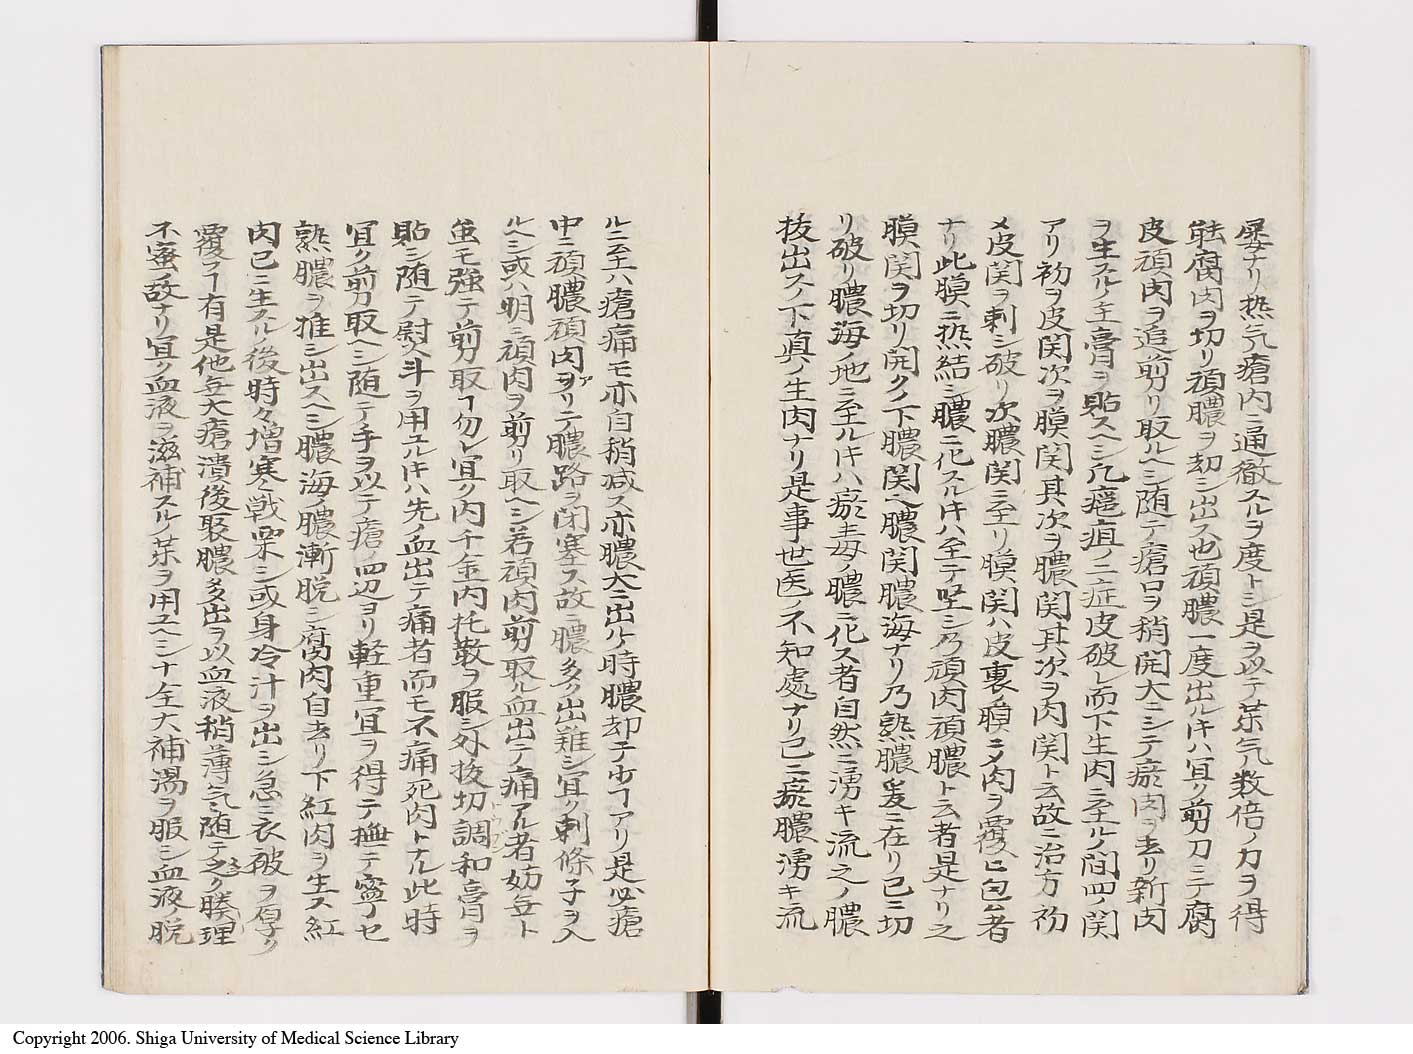 ナリ热気瘡内ニ通徹スルヲ度トシ是ヲ以テ茶気数倍ノ力ヲ得
能腐肉ヲ切リ頑膿ヲ却シ出ス也頑膿一度出ルキハ冝ク剪刀ニテ腐
皮頑肉ヲ追剪リ取ルヘシ随テ瘡口ヲ稍開大ニシテ瘀肉ヲ去リ新肉
ヲ生スルノ主膏ヲ貼スヘシ凡癰疽ノ二症皮破レ而下生肉ニ至ルノ間四ノ関
アリ初ヲ皮関次ヲ膜関其次ヲ膿関其次ヲ肉関ト云故ニ治方初
メ皮関ヲ刺シ破リ次膿関ニ至リ膜関ハ皮裏ノ膜ニメ肉ヲ覆ヒ包ム者
ナリ此膜ニ热結シ膿ニ化スルキハ全テ堅シ乃頑肉頑膿ト云者是ナリ之
膜関ヲ切リ開クノ下膿関ヘ膿関膿海ナリ乃熟膿爰ニ在リ已ニ切
リ破リ膿海ノ地ニ至ルキハ瘀毒ノ膿ニ化ス者自然ニ湧キ流之ノ膿
抜出スノ下真ノ生肉ナリ是事世医ノ不知處ナリ已ニ瘀膿湧キ流
ルニ至ハ瘡痛モ亦自稍減ス亦膿大ニ出ルノ時膿却テ少ヿアリ是必瘡
中ニ頑膿頑肉アリテ膿路ヲ閉塞ス故ニ膿多ク出難シ冝ク刺條子ヲ入
ルヘシ或ハ明ニ頑肉ヲ剪リ取ヘシ若頑肉剪取ル血出テ痛アル者妨毎ト
虽モ強テ剪取ヿ勿レ冝ク内千金内托散ヲ服シ外抜切調和膏ヲ
貼シ随テ熨斗ヲ用ユルキハ先ノ血出テ痛者而モ不痛死肉トナル此時
冝ク剪取ヘシ随テ手ヲ以テ瘡ノ四辺ヨリ軽重冝ヲ得テ撫テ寧セ
熟膿ヲ推シ出スヘシ膿海ノ膿漸脱シ腐肉自去リ下紅肉ヲ生ス紅
肉已ニ生スルノ後時々増寒戦栗シ或身冷汁ヲ出シ急ニ衣破ヲ厚ク
覆フヿ有是他毎大瘡潰後聚膿多出ヲ以血液稍薄気随テ之ク腠理
不蜜故ナリ冝ク血液ヲ滋補スル茶ヲ用ユヘシ十全大補湯ヲ服シ血液ノ脱
Copyright 2006. Shiga University of Medical Science Library